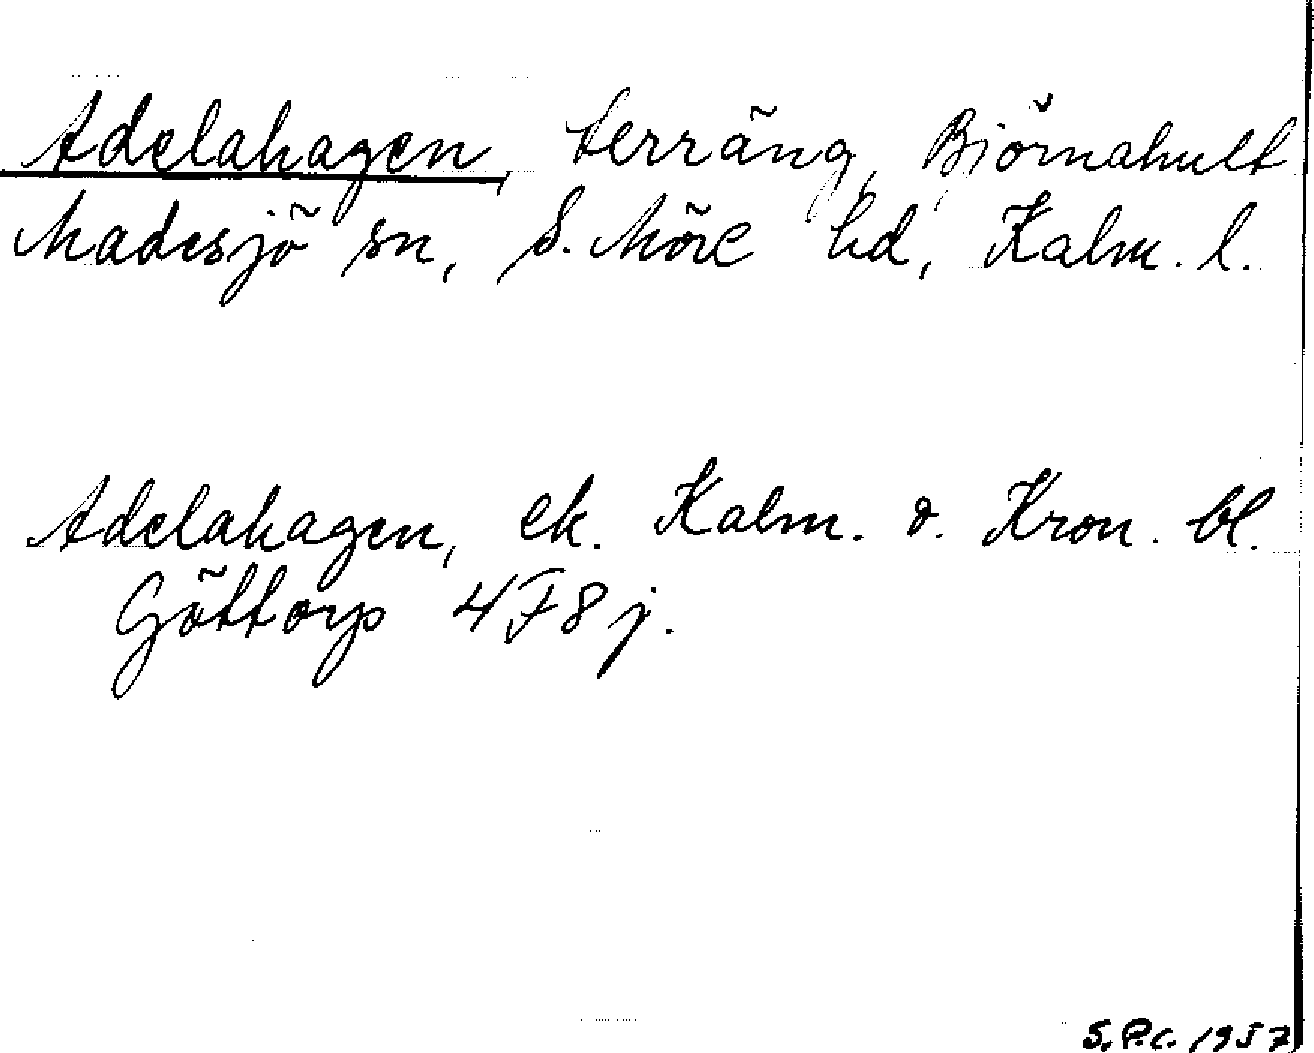 Adelahagen, terräng, Björnahult
Madesjö sn, S. Möre hd, Kalm. l.
Adelahagen, ek. Kalm. o. Kron. bl.
Göttorp 4F8j.
S.P.C. 1957